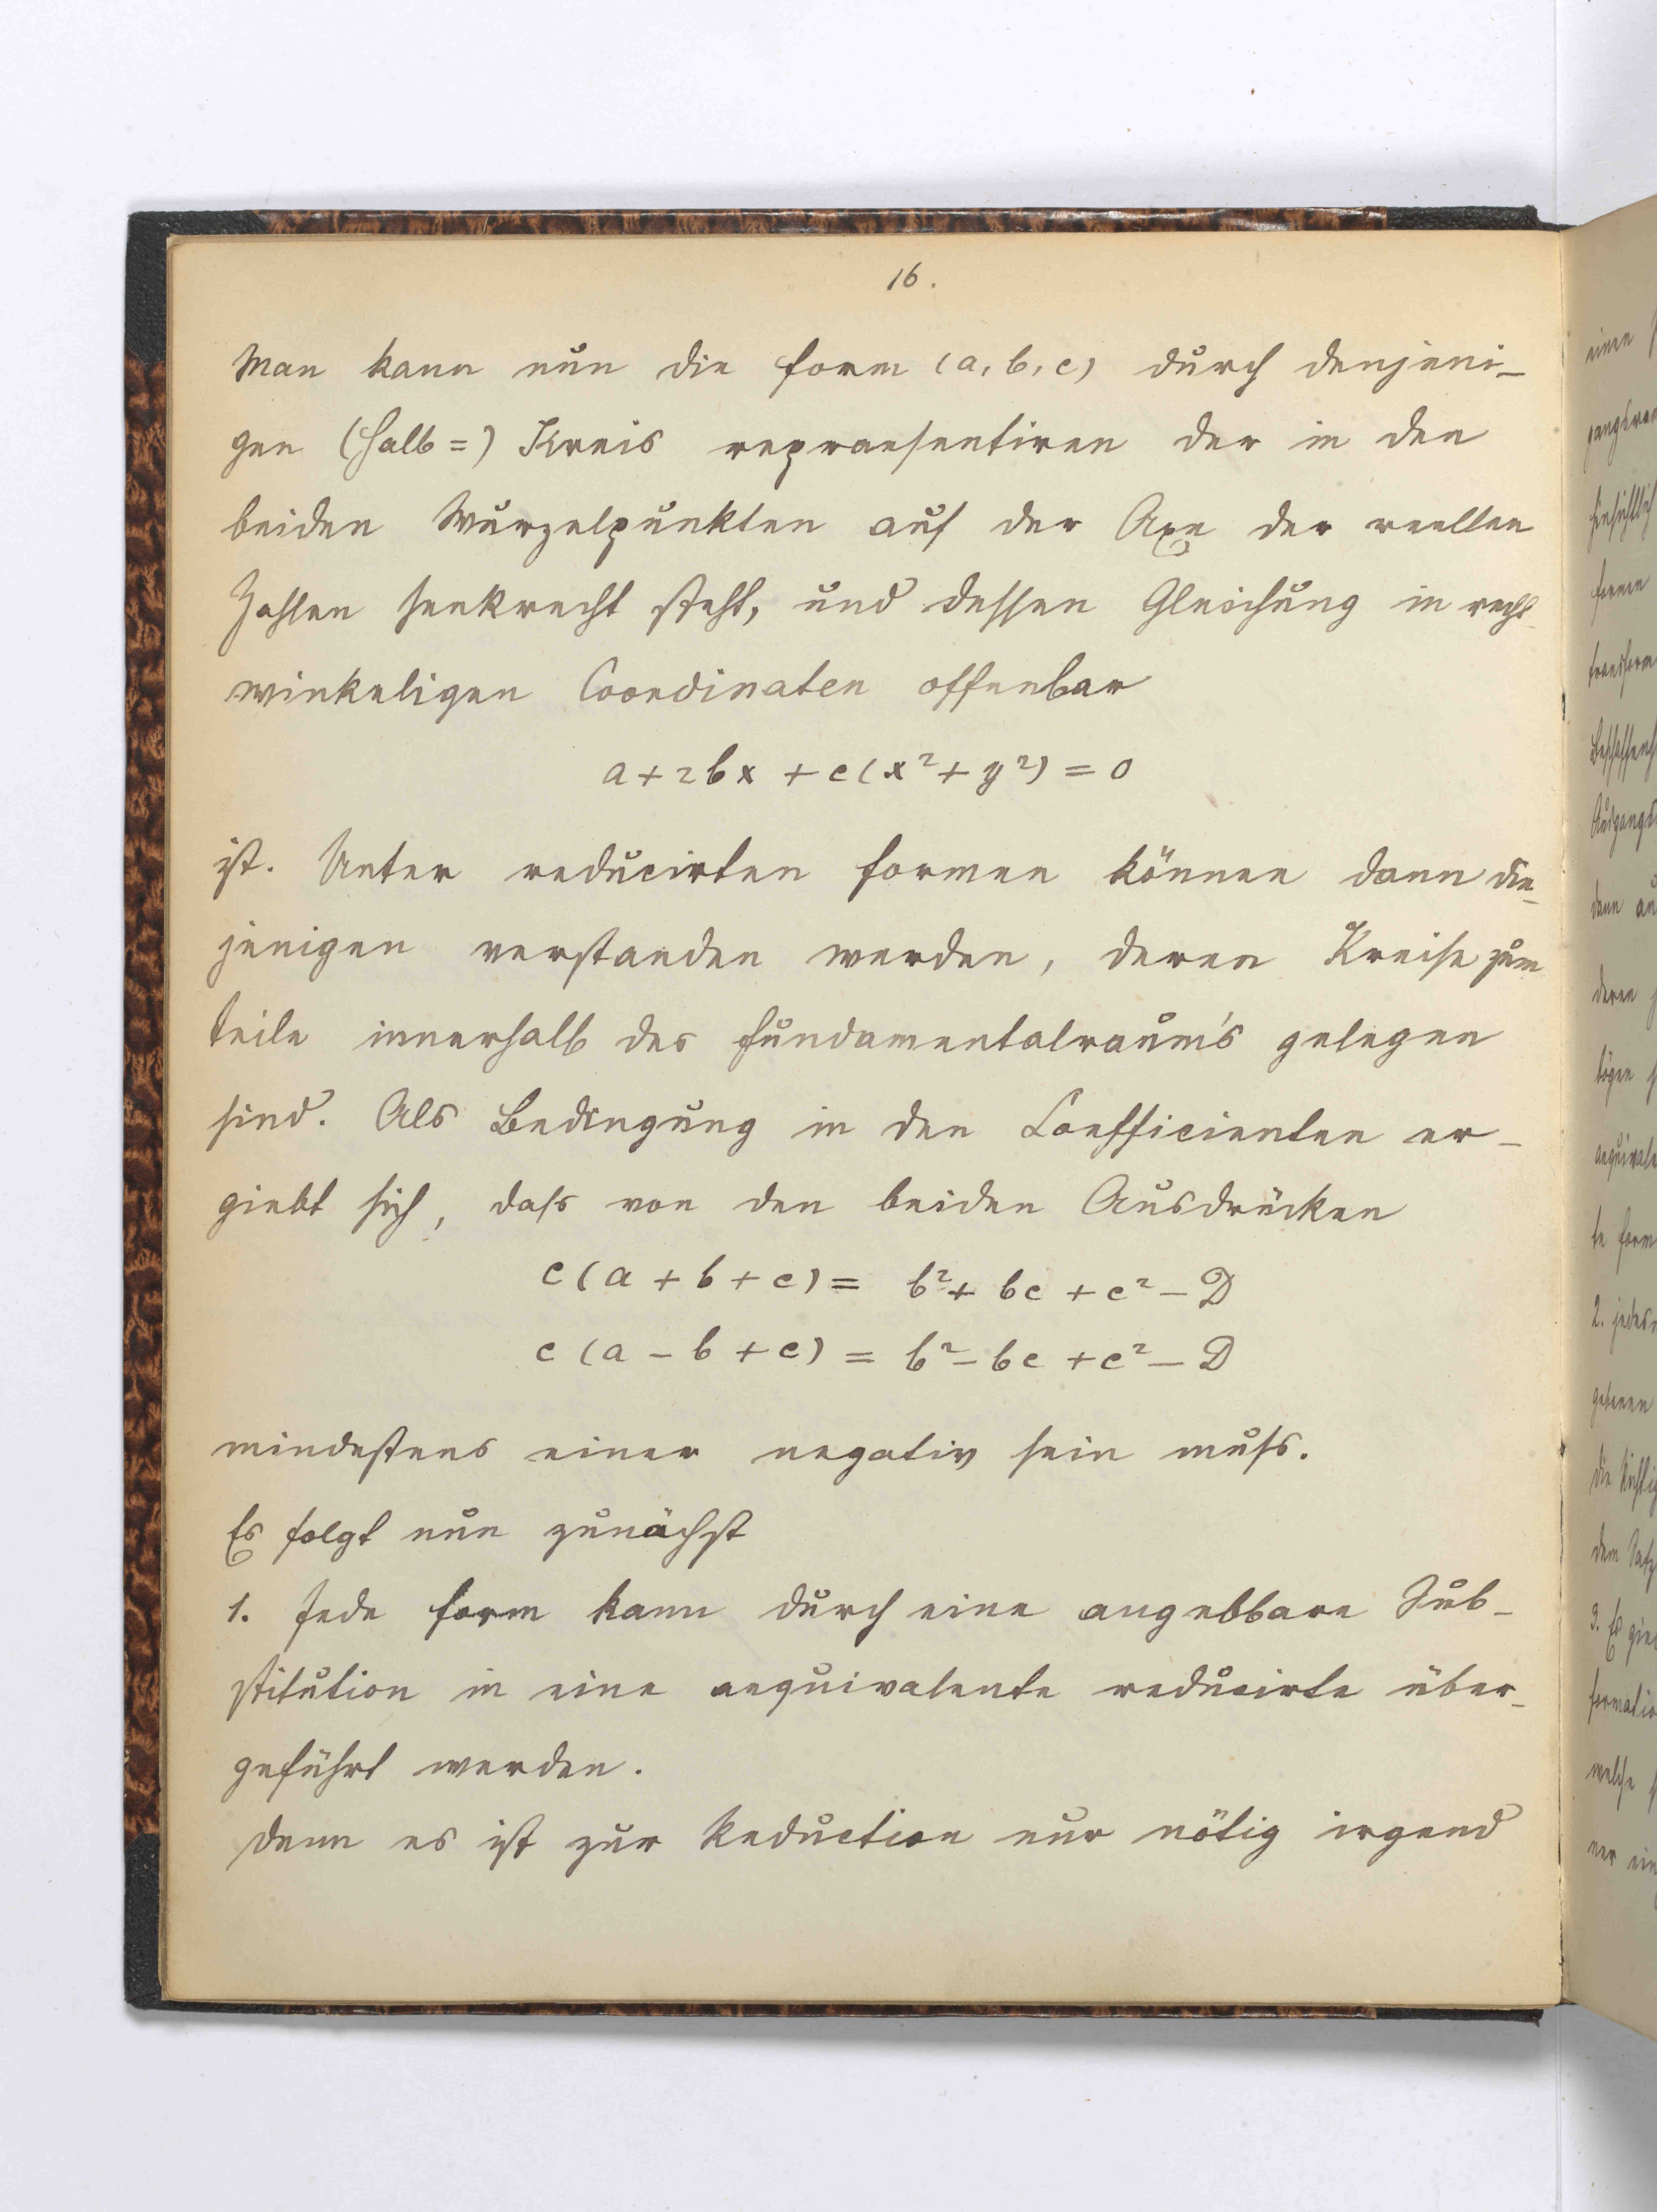 16.
Man kann nun die Form (a, b, c) durch denjeni-
gen (Halb=) Kreis repraesentiren der in den
beiden Wurzelpunkten auf der Axe der reellen
Zahlen senkrecht steht, und dessen Gleichung in recht-
winkeligen Coordinaten offenbar
a + 2bx + c(x² + y²) = 0
ist. Unter reducirten Formen können dann die-
jenigen verstanden werden, deren Kreise zum
teile innerhalb des Fundamentalraum's gelegen
sind. Als Bedingung in den Coefficienten er-
giebt sich, dass von den beiden Ausdrücken
c(a + b + c) = b² + bc + c² - D
c(a - b + c) = b² - bc + c² - D
mindestens einer negativ sein muss.
Es folgt nun zunächst
1. Jede Form kann durch eine angebbare Sub-
stitution in eine aequivalente reducirte über-
geführt werden.
Denn es ist zur Reduction nur nötig irgend
einen
hinsichtlich
formen
transform
dann
deren
bögen
aequivale
te form
2. jedes
gebenen
dem Satz
3. Es gie
formatio
welche
ner ein